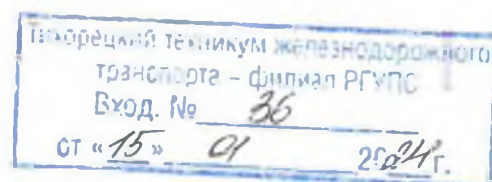 Тихорецкий техникум железнодорожного
транспорта – филиал РГУПС
Вход. № 36
от «15» 01 2024 г.